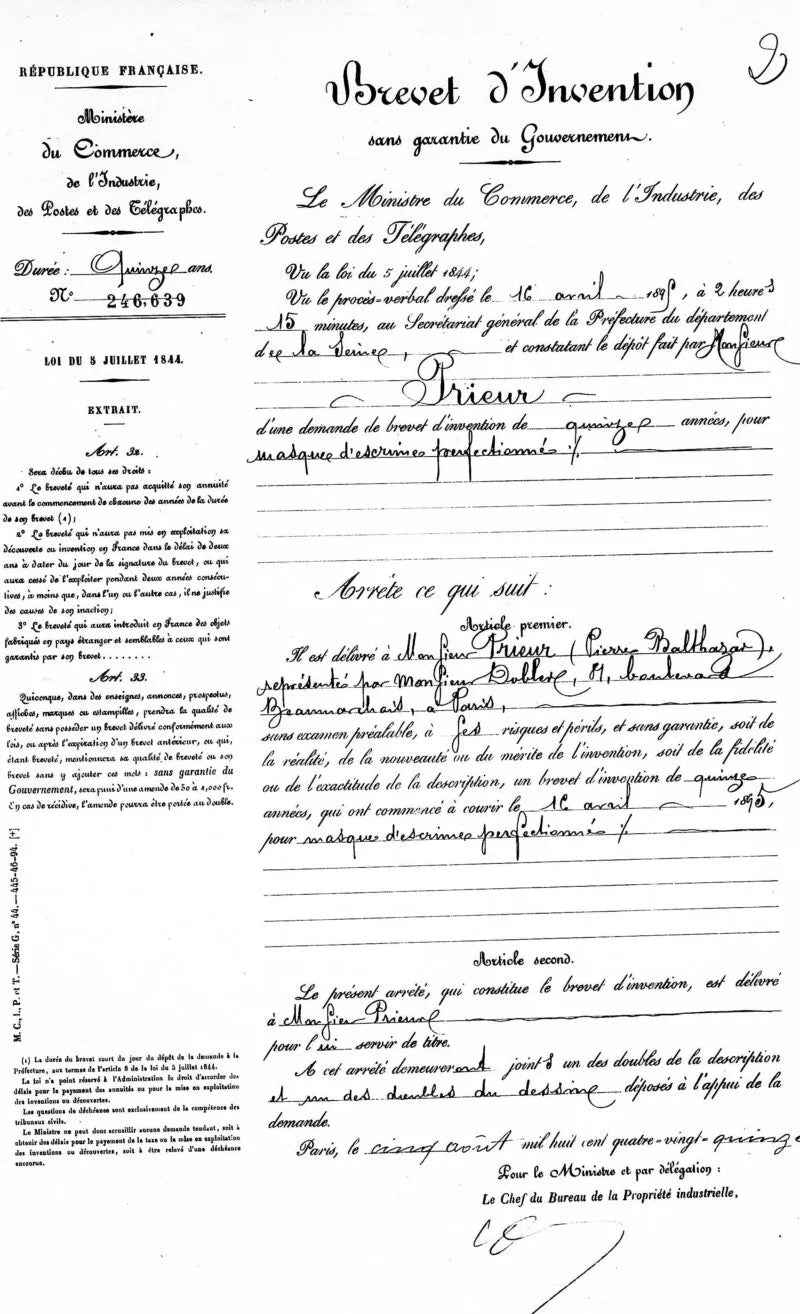 RÉPUBLIQUE FRANÇAISE.
Ministère
du Commerce,
de l'Industrie,
des Postes et des Télégraphes.
Durée : Quinze ans.
N° 246,639
LOI DU 5 JUILLET 1844.
EXTRAIT.
Art. 32.
Sera déchu de tous ses droits :
1° Le breveté qui n'aura pas acquitté son annuité
avant le commencement de chacune des années de la durée
de son brevet (1);
2° Le breveté qui n'aura pas mis en exploitation sa
découverte ou invention en France dans le délai de deux
ans à dater du jour de la signature du brevet, ou qui
aura cessé de l'exploiter pendant deux années consécu-
tives, à moins que, dans l'un ou l'autre cas, il ne justifie
des causes de son inaction;
3° Le breveté qui aura introduit en France des objets
fabriqués en pays étranger et semblables à ceux qui sont
garantis par son brevet........
Art. 33.
Quiconque, dans des enseignes, annonces, prospectus,
affiches, marques ou estampilles, prendra la qualité de
breveté sans posséder un brevet délivré conformément aux
lois, ou après l'expiration d'un brevet antérieur, ou qui,
étant breveté, mentionnera sa qualité de breveté ou son
brevet sans y ajouter ces mots : sans garantie du
Gouvernement, sera puni d'une amende de 50 à 1,000 fr.
En cas de récidive, l'amende pourra être portée au double.
M. C., I., P. et T. — Série G, n° 44. — 445-46-94. [*]
(1) La durée du brevet court du jour du dépôt de la demande à la
Préfecture, aux termes de l'article 8 de la loi du 5 juillet 1844.
La loi n'a point réservé à l'Administration le droit d'accorder des
délais pour le payement des annuités ou pour la mise en exploitation
des inventions ou découvertes.
Les questions de déchéance sont exclusivement de la compétence des
tribunaux civils.
Le Ministre ne peut donc accueillir aucune demande tendant, soit à
obtenir des délais pour le payement de la taxe ou la mise en exploitation
des inventions ou découvertes, soit à être relevé d'une déchéance
encourue.
2
Brevet d'Invention
sans garantie du Gouvernement.
Le Ministre du Commerce, de l'Industrie, des
Postes et des Télégraphes,
Vu la loi du 5 juillet 1844;
Vu le procès-verbal dressé le 16 avril 1895, à 2 heures
15 minutes, au Secrétariat général de la Préfecture du département
de la Seine, et constatant le dépôt fait par Monsieur
Prieur
d'une demande de brevet d'invention de quinze années, pour
masque d'escrime perfectionné ./.
Arrête ce qui suit :
Article premier.
Il est délivré à Monsieur Prieur (Pierre Balthazar),
représenté par Monsieur Dobler, boulevard
Beaumarchais, à Paris,
sans examen préalable, à ses risques et périls, et sans garantie, soit de
la réalité, de la nouveauté ou du mérite de l'invention, soit de la fidélité
ou de l'exactitude de la description, un brevet d'invention de quinze
années, qui ont commencé à courir le 16 avril 1895,
pour masque d'escrime perfectionné ./.
Article second.
Le présent arrêté, qui constitue le brevet d'invention, est délivré
à Monsieur Prieur
pour lui servir de titre.
A cet arrêté demeureront joints un des doubles de la description
et un des doubles du dessin déposés à l'appui de la
demande.
Paris, le cinq août mil huit cent quatre-vingt-quinze
Pour le Ministre et par délégation :
Le Chef du Bureau de la Propriété industrielle,